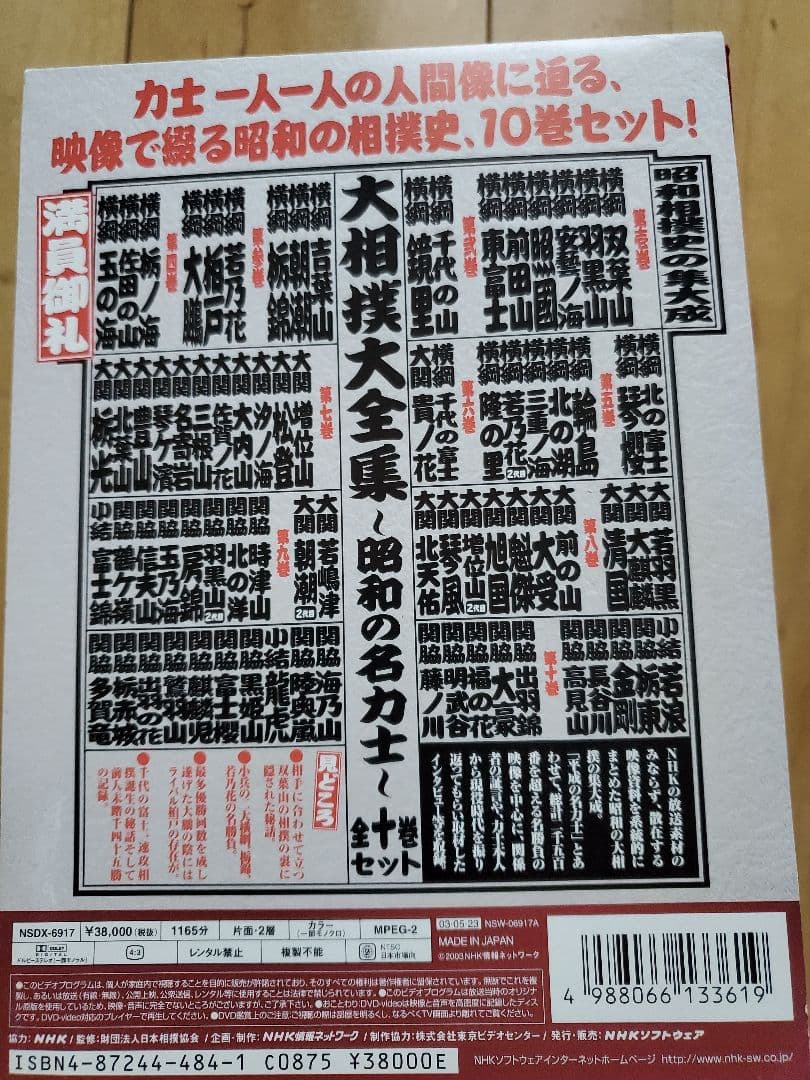 力士一人一人の人間像に迫る、
映像で綴る昭和の相撲史、10巻セット!
満員御礼
昭和相撲史の集大成
大相撲大全集～昭和の名力士～
全十巻セット
第壱巻
横綱 双葉山
横綱 羽黒山
横綱 安藝ノ海
横綱 照國
横綱 前田山
横綱 東富士
第弐巻
横綱 千代の山
横綱 鏡里
横綱 吉葉山
横綱 朝潮
横綱 栃錦
第参巻
横綱 若乃花
横綱 柏戸
横綱 大鵬
第四巻
横綱 栃ノ海
横綱 佐田の山
横綱 玉の海
横綱 北の富士
横綱 琴櫻
第五巻
横綱 輪島
横綱 北の湖
横綱 三重ノ海
横綱 若乃花 2代目
横綱 隆の里
第六巻
横綱 千代の富士
大関 貴ノ花
第七巻
大関 増位山
大関 松登
大関 汐ノ海
大関 大内山
大関 佐賀ノ花
大関 三根山
大関 名寄岩
大関 琴ケ濱
大関 豊山
大関 北葉山
大関 栃光
大関 若羽黒
大関 大麒麟
大関 清国
第八巻
大関 前の山
大関 大受
大関 魁傑
大関 旭国
大関 増位山 2代目
大関 琴風
大関 北天佑
大関 若嶋津
大関 朝潮 2代目
第九巻
関脇 時津山
関脇 北の洋
関脇 羽黒山 2代目
関脇 房錦
関脇 玉乃海
関脇 信夫山
関脇 鶴ケ嶺
小結 富士錦
小結 若浪
関脇 栃東
関脇 金剛
関脇 長谷川
関脇 高見山
第十巻
関脇 出羽錦
関脇 大豪
関脇 福の花
関脇 明武谷
関脇 藤ノ川
関脇 海乃山
関脇 陸奥嵐
小結 龍虎
小結 黒姫山
関脇 富士櫻
関脇 麒麟児
関脇 鷲羽山
関脇 出羽の花
関脇 栃赤城
関脇 多賀竜
NHKの放送素材の
みならず、散在する
映像資料を系統的に
まとめた昭和の大相
撲の集大成。
「平成の名力士」とあ
わせて、総計二千五百
番を超える名勝負の
映像を中心に、関係
者の証言や、力士本人
から現役時代を振り
返ってもらい取材した
インタビュー等を収録。
見どころ
●相手に合わせて立つ
双葉山の相撲の裏に
隠された秘話。
●小兵の二大横綱、栃錦、
若乃花の名勝負。
●最多優勝回数を成し
遂げた大鵬の陰には
ライバル柏戸の存在が。
●千代の富士、速攻相
撲誕生の秘話そして
前人未踏千四十五勝
の記録。
NSDX-6917 ¥38,000(税抜) 1165分 片面・2層 カラー(一部モノクロ) MPEG-2
03-05-23 NSW-06917A
DOLBY DIGITAL ドルビーステレオ(一部モノラル) 4:3 レンタル禁止 複製不能 2 NTSC 日本市場向
MADE IN JAPAN
©2003 NHK情報ネットワーク
●このビデオプログラムは、個人が家庭内で視聴することを目的に販売が許諾されており、そのすべての権利は著作権者に留保されています。無断でこれを複
製し、あるいは放送(有線・無線)、公開上映、公衆送信、レンタル等に使用することは法律で禁じられています。●このビデオプログラムは放送当時のオリジナ
ル原版を使用しているため、映像・音声に完全でないところがございますが、ご了承下さい。●おことわり:DVD-videoは映像と音声を高密度に記録したディス
クです。DVD-video対応のプレイヤーで再生してください。●DVD鑑賞上のご注意:ご視聴の際は部屋を明るくし、なるべくTV画面より離れてご覧ください。
4 988066 133619
協力:NHK/監修:財団法人日本相撲協会/企画・制作:NHK情報ネットワーク/制作協力:株式会社東京ビデオセンター/発行・販売:NHKソフトウェア
ISBN4-87244-484-1 C0875 ¥38000E
NHKソフトウェアインターネットホームページ http://www.nhk-sw.co.jp/